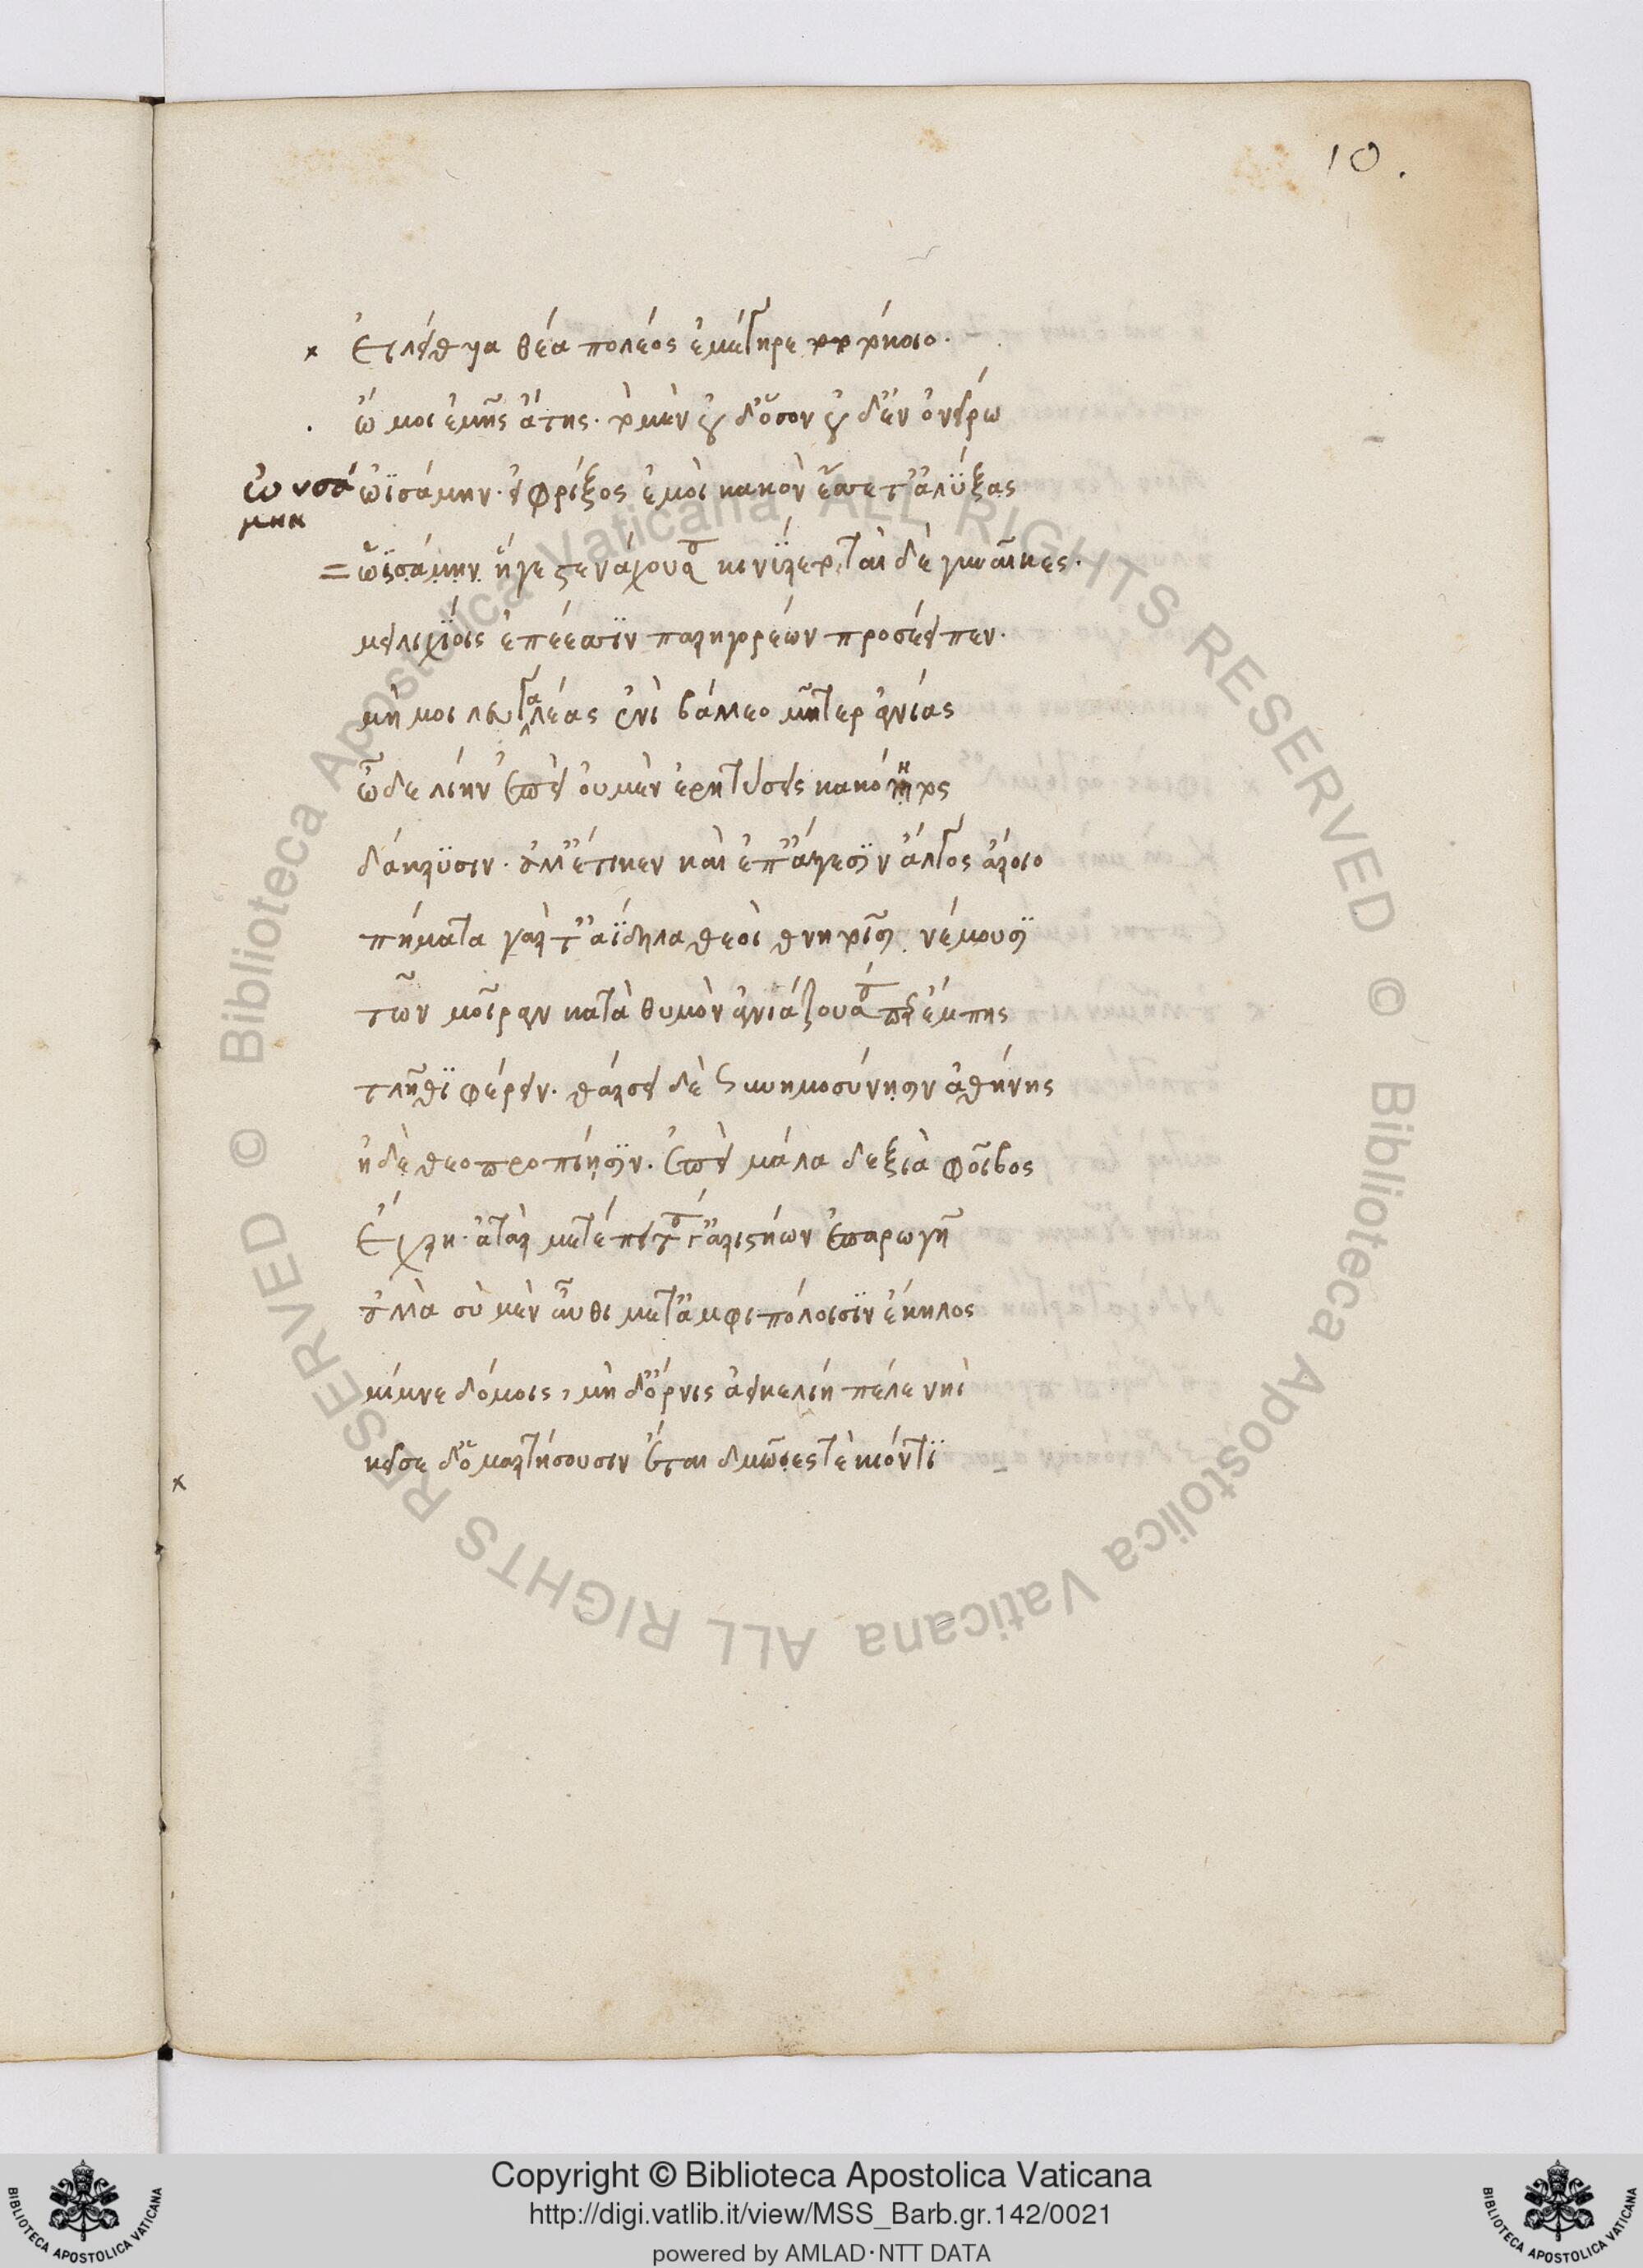 10.
Εἰλείθυια θέα πολέος ἐμέγηρε τοτόκοιο.
ὤ μοι ἐμῆς ἄτης. τὸ μὲν οὐδ' ὅσον οὐδ' ἐν ὀνείρω
ὠϊσάμην. εἰ φρίξος ἐμοὶ κακὸν ἔσσετ' ἀλύξας
ὠϊσάμην ἥγε στενάχουσα κινύρετο ταὶ δὲ γυναῖκες.
μειλιχίοις ἐπέεσσιν παρηγορέων προσέειπεν.
μή μοι λευγαλέας ἐνὶ βάλλεο μῆτερ ἀνίας
ὧδε λίην ἐπεὶ οὐ μὲν ἐρητύσεις κακότητος
δάκρυσιν. ἀλλ' ἔτι κεν καὶ ἐπ' ἄλγεσιν ἄλγος ἄροιο
πήματα γάρ τ' ἀΐδηλα θεοὶ θνητοῖσι νέμουσι
τῶν μοῖραν κατὰ θυμὸν ἀνιάζουσά περ ἔμπης
τλῆθι φέρειν. θάρσει δὲ συνημοσύνησιν ἀθήνης
ἠδὲ θεοπροπίησιν. ἐπεὶ μάλα δεξιὰ φοῖβος
Ἔχρη. ἀτὰρ μετέπειτά γ' ἀριστήων ἐπαρωγῆ
ἀλλὰ σὺ μὲν αὖθι μετ' ἀμφιπόλοισιν ἕκηλος
μίμνε δόμοις, μὴ δ' ὄρνις ἀεικελίη πέλε νηὶ
κεῖσε δ' ὁμαρτήσουσιν ἔται δμῶές τε κιόντι
Copyright © Biblioteca Apostolica Vaticana
http://digi.vatlib.it/view/MSS_Barb.gr.142/0021
powered by AMLAD·NTT DATA
BIBLIOTECA APOSTOLICA VATICANA
BIBLIOTECA APOSTOLICA VATICANA
© Biblioteca Apostolica Vaticana ALL RIGHTS RESERVED © Biblioteca Apostolica Vaticana ALL RIGHTS RESERVED